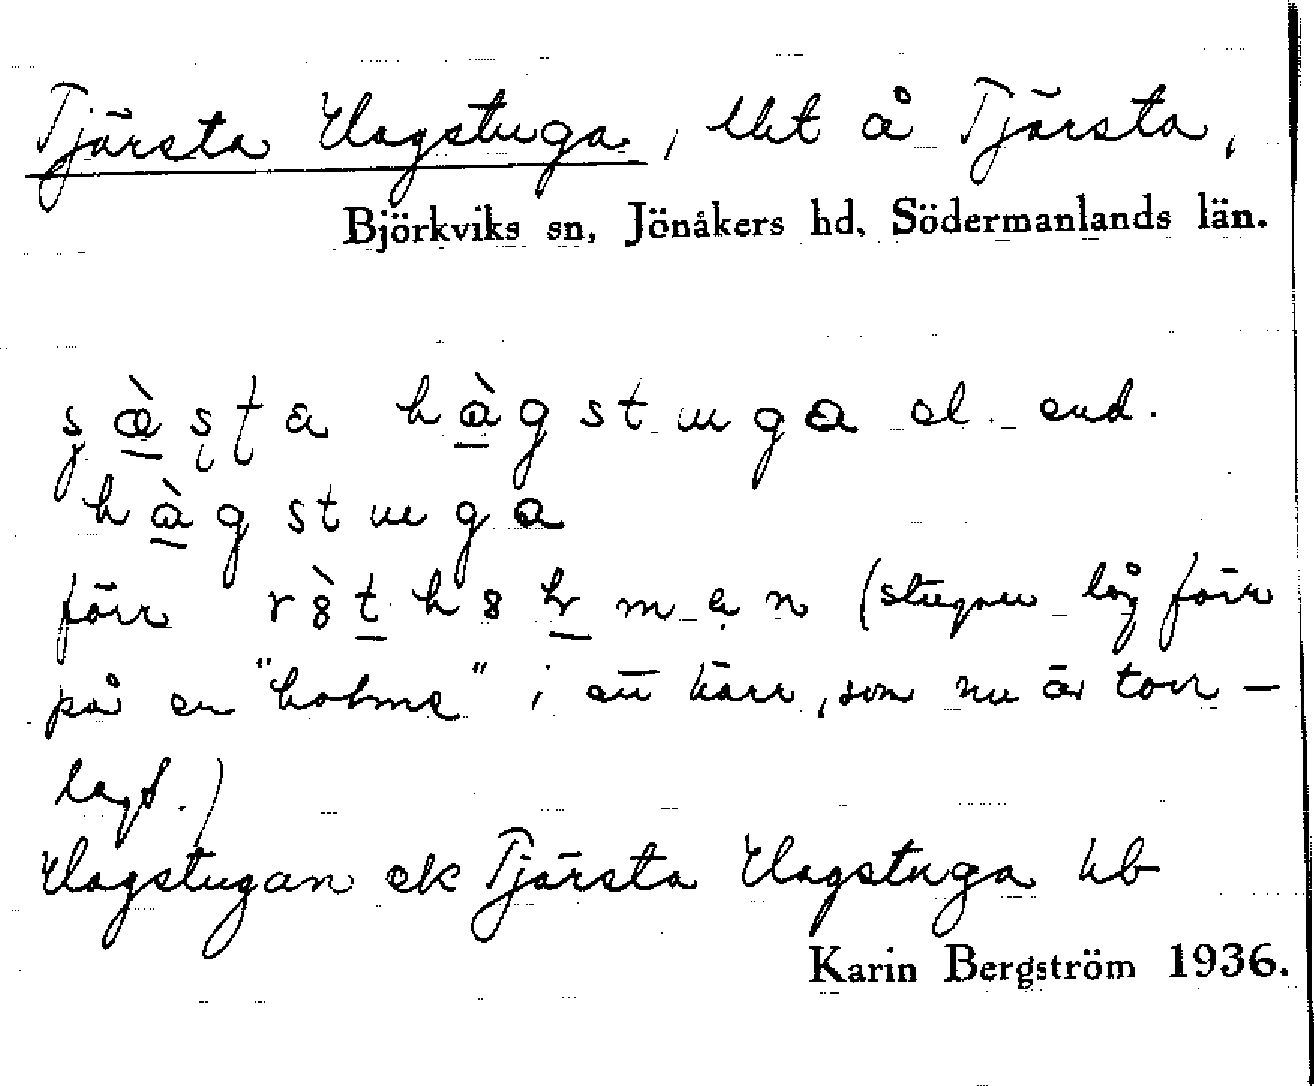 Tjärsta Hagstuga, lht å Tjärsta,
Björkviks sn, Jönåkers hd, Södermanlands län.
hàgstuga el. end.
hàgstuga
förr (stugan låg förr
på en "holme" i ett kärr, som nu är torr-
lagt.)
Hagstugan ek Tjärsta Hagstuga hb
Karin Bergström 1936.